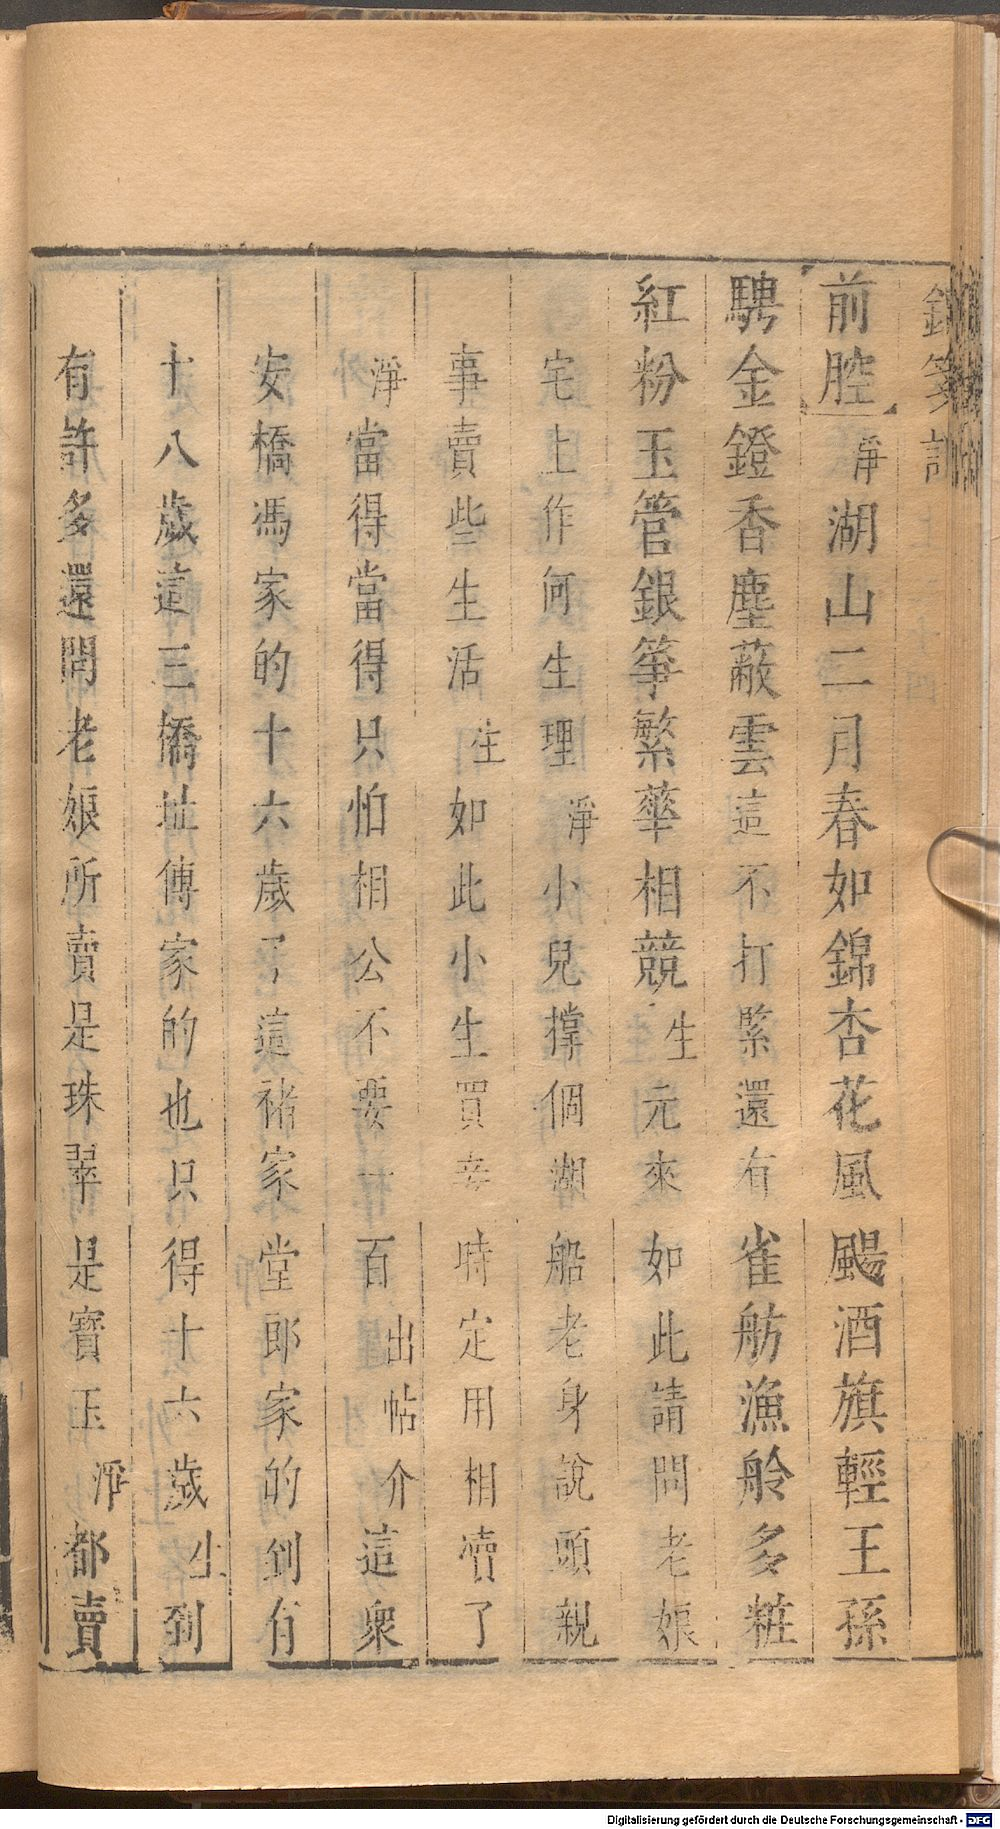 箋記
前腔 淨 湖山二月春如錦杏花風颺酒旗輕王孫
騁金鐙香塵蔽雲這不打緊還有雀舫漁舲多粧
紅粉玉管銀箏繁華相競 生 元來如此請問老娘
宅上作何生理 淨 小兒撑個湖船老身說頭親
事賣些生活 生 如此小生買幸時定用相凟了
淨 當得當得只怕相公不要一百 出帖介 這衆
安橋馮家的十六歲了這褚家堂郎家的到有
十八歲這三橋址傳家的也只得十六歲 生 到
有許多還問老娘所賣是珠翠是寳玉 淨 都賣
Digitalisierung gefördert durch die Deutsche Forschungsgemeinschaft - DFG